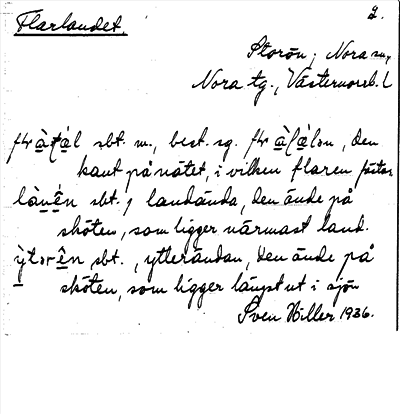 Flarlandet.
2.
Storön, Nora sn,
Nora tg., Västernorrl. l
sbt. m., best. sg. den
kant på nätet, i vilken flaren fästas
lànén sbt., landända, den ände på
sköten, som ligger närmast land.
ỳtərên sbt., ytterändan, den ände på
sköten, som ligger längst ut i sjön
Sven Hiller 1936.